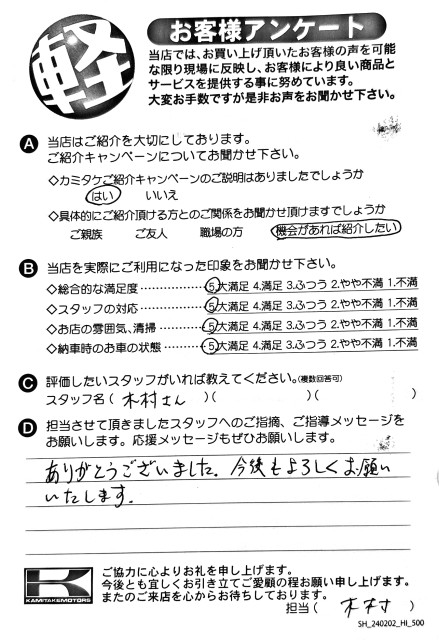 軽
お客様アンケート
当店では、お買い上げ頂いたお客様の声を可能
な限り現場に反映し、お客様により良い商品と
サービスを提供する事に努めています。
大変お手数ですが是非お声をお聞かせ下さい。
A 当店はご紹介を大切にしております。
ご紹介キャンペーンについてお聞かせ下さい。
◇カミタケご紹介キャンペーンのご説明はありましたでしょうか
はい いいえ
◇具体的にご紹介頂ける方とのご関係をお聞かせ頂けますでしょうか
ご親族 ご友人 職場の方 機会があれば紹介したい
B 当店を実際にご利用になった印象をお聞かせ下さい。
◇総合的な満足度……………5.大満足 4.満足 3.ふつう 2.やや不満 1.不満
◇スタッフの対応……………5.大満足 4.満足 3.ふつう 2.やや不満 1.不満
◇お店の雰囲気、清掃………5.大満足 4.満足 3.ふつう 2.やや不満 1.不満
◇納車時のお車の状態………5.大満足 4.満足 3.ふつう 2.やや不満 1.不満
C 評価したいスタッフがいれば教えてください。(複数回答可)
スタッフ名( 木村さん )( )( )
D 担当させて頂きましたスタッフへのご指摘、ご指導メッセージを
お願いします。応援メッセージもぜひお願いします。
ありがとうございました。今後もよろしくお願い
いたします。
ご協力に心よりお礼を申し上げます。
今後とも宜しくお引き立てご愛顧の程お願い申し上げます。
またのご来店を心からお待ちしております。
K
KAMITAKEMOTORS
担当( 木村 )
SH_240202_HI_500